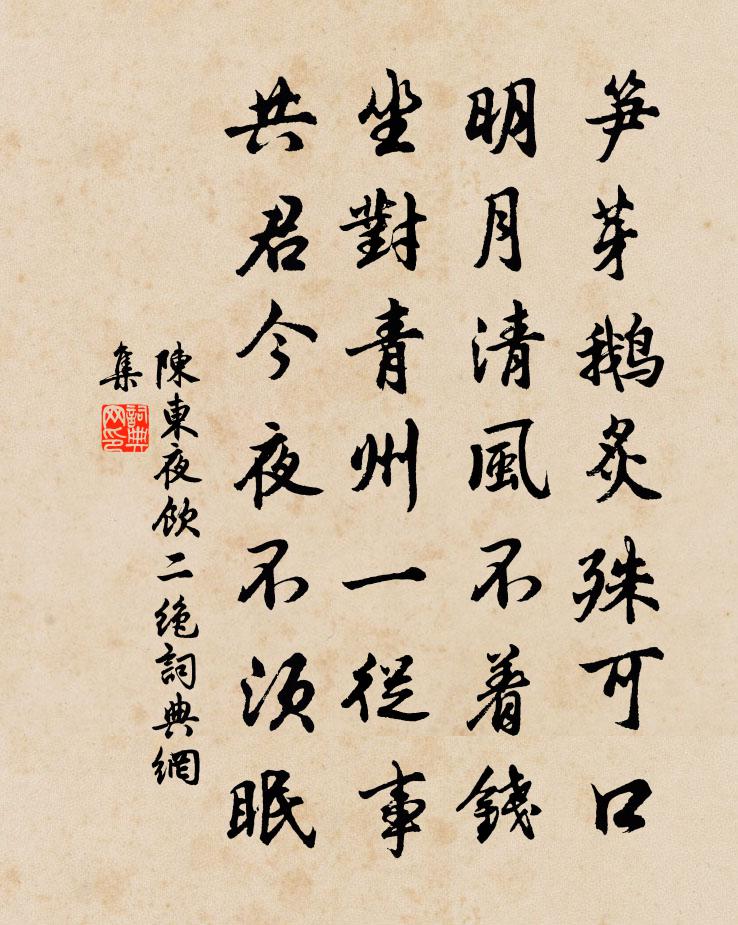 笋芽鵝炙殊可口
明月清風不着錢
坐對青州一從事
共君今夜不須眠
陳東夜飲二絶詞典網
集
詞典
网印